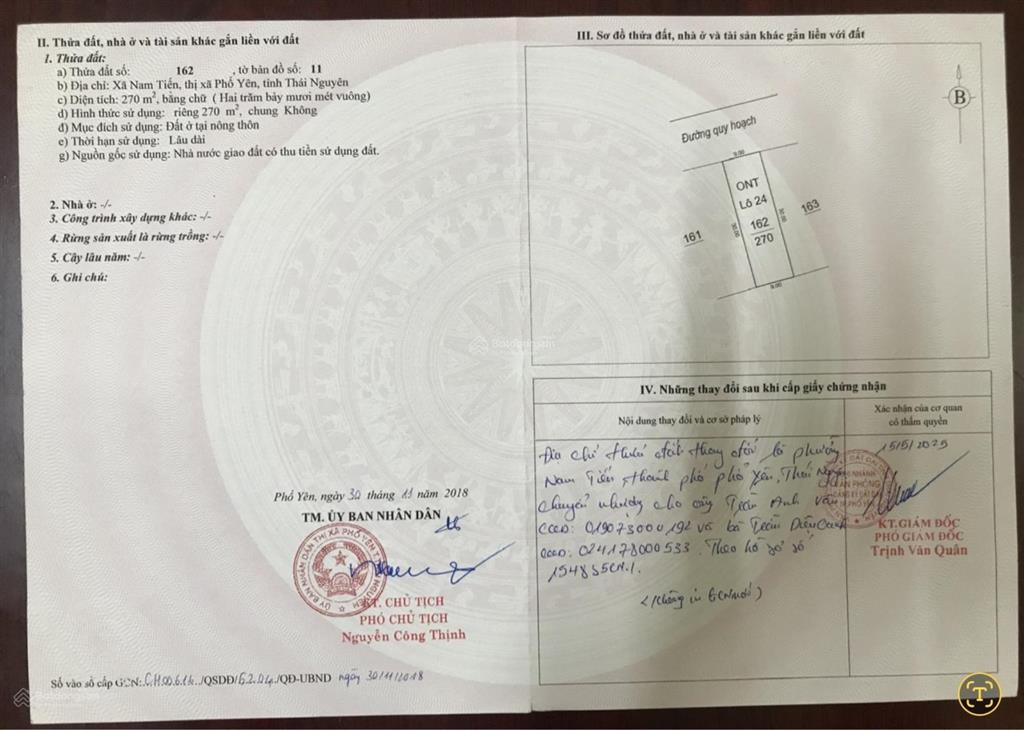 II. Thửa đất, nhà ở và tài sản khác gắn liền với đất
1. Thửa đất:
a) Thửa đất số: 162 , tờ bản đồ số: 11
b) Địa chỉ: Xã Nam Tiến, thị xã Phổ Yên, tỉnh Thái Nguyên
c) Diện tích: 270 m², bằng chữ ( Hai trăm bảy mươi mét vuông)
d) Hình thức sử dụng: riêng 270 m², chung Không
đ) Mục đích sử dụng: Đất ở tại nông thôn
e) Thời hạn sử dụng: Lâu dài
g) Nguồn gốc sử dụng: Nhà nước giao đất có thu tiền sử dụng đất.
2. Nhà ở: -/-
3. Công trình xây dựng khác: -/-
4. Rừng sản xuất là rừng trồng: -/-
5. Cây lâu năm: -/-
6. Ghi chú:
Phổ Yên, ngày 30 tháng 11 năm 2018
TM. ỦY BAN NHÂN DÂN
KT. CHỦ TỊCH
PHÓ CHỦ TỊCH
Nguyễn Công Thịnh
Số vào sổ cấp GCN: /QSDĐ/ /QĐ-UBND ngày 30/11/2018
III. Sơ đồ thửa đất, nhà ở và tài sản khác gắn liền với đất
B
Đường quy hoạch
9.00
ONT
Lô 24
30.00
30.00
162
270
161
163
9.00
IV. Những thay đổi sau khi cấp giấy chứng nhận
Nội dung thay đổi và cơ sở pháp lý
Xác nhận của cơ quan
có thẩm quyền
Địa chỉ thửa đất thay đổi là phường
Nam Tiến, thành phố Phổ Yên, Thái
chuyển nhượng cho ông Trần Anh Văn
CCCD: 019073000192 và bà Trần
CCCD: 024178000533. Theo hồ sơ số
(Không in GCN mới)
15/5/2025
KT.GIÁM ĐỐC
PHÓ GIÁM ĐỐC
Trịnh Văn Quân
Batdongsan
Batdongsan